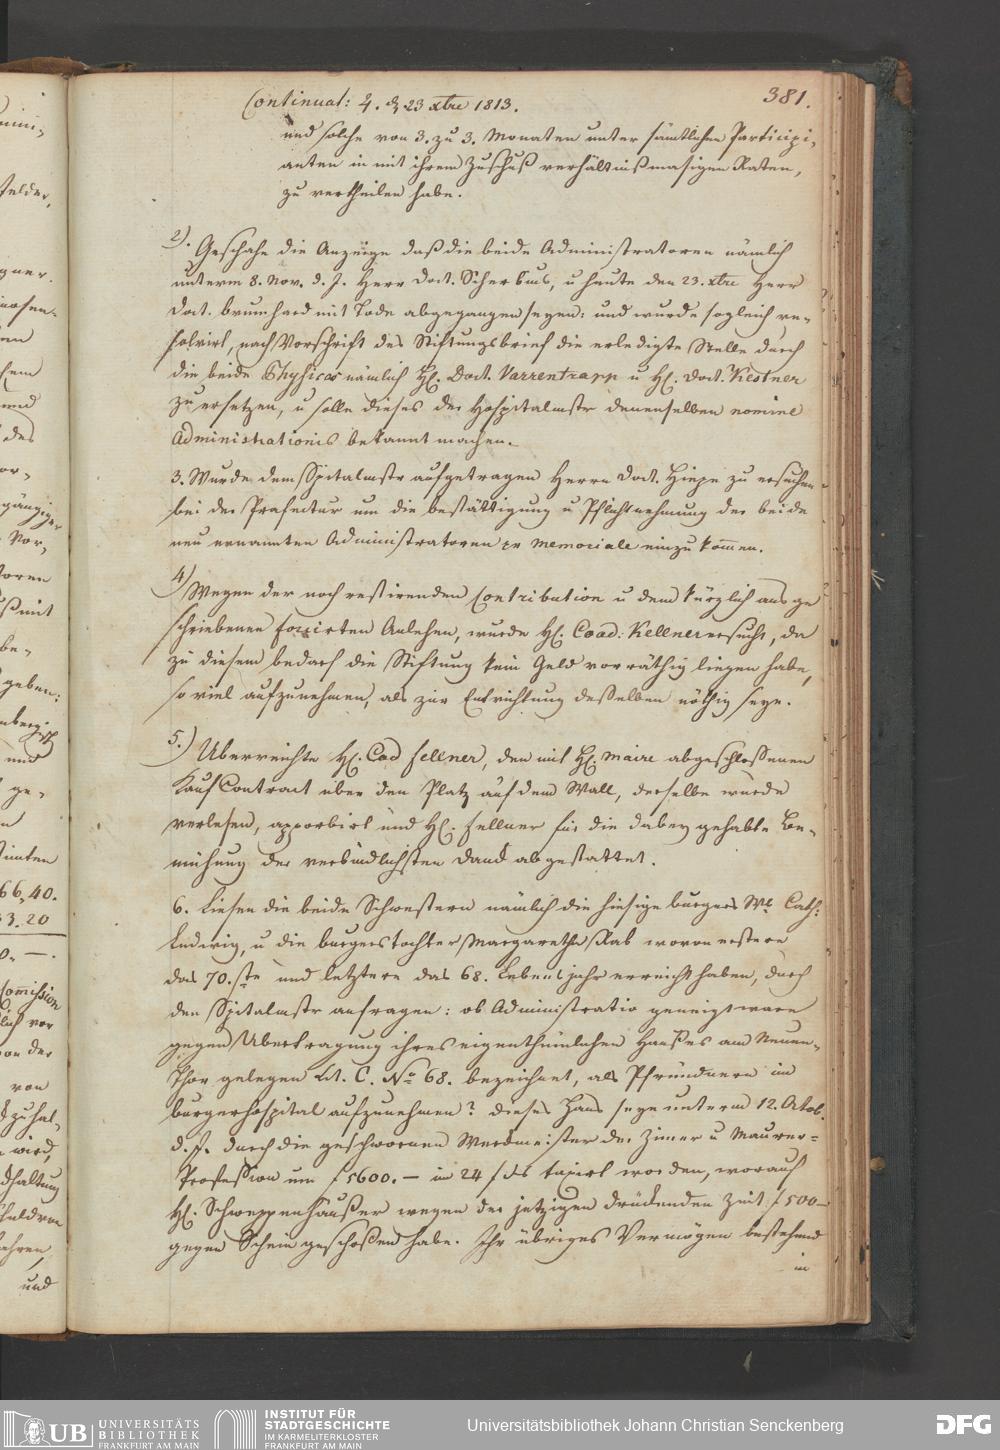 Continuat: 4. d 23 xbre 1813.
381.
und solche von 3. zu 3. Monaten unter sämtlichen Participi-
anten in mit ihrem Zuschuß verhältnißmasigen Raten,
zu vertheilen habe.
2). Geschahe die Anzeige daß die beide Administratoren nämlich
unterm 8. Nov. d. J. Herr Doct. Scherbius, u heute den 23. xbre Herr
Doct. brumhard mit Tode abgegangen seyen: und wurde sogleich re-
solvirt, nach Vorschrift des Stiftungsbrief die erledigte Stelle durch
die beide Physicos nämlich H. Doct. Varrentrapp u H. Doct. Kestner
zu ersetzen, u solle dieses der Hospitalmstr denenselben nomine
Administrationis bekannt machen.
3. Wurde dem Spitalmstr aufgetragen Herrn Doct. Hiepe zu ersuchen
bei der Prafectur um die bestättigung u Pflichtnehmung der beide
neu ernannten Administratoren pr memoriale einzukom̄en.
4) Wegen der noch restirenden Contribution u dem kürzlich ausge
schriebenen forzirten Anlehen, wurde H. Coad: Kellner ersucht, da
zu diesem bedarf die Stiftung kein Geld vorräthig liegen habe,
so viel aufzunehmen, als zur Entrichtung desselben nöthig seye.
5.) Uberreichte H. Cad fellner, den mit H. maire abgeschlossenen
Kauf Contract uber den Platz auf dem Wall, derselbe wurde
verlesen, approbirt und H. fellner für die dabey gehabte Be-
mühung der verbindlichsten Danck abgestattet.
6. Liesen die beide Schwestern nämlich die hiesige burgers Wb Cath:
Ludwig, u die burgerstochter Margaretha Rab wovon erstere
das 70.ste und letztere das 68. Lebensjahr erreicht haben, durch
den Spitalmstr anfragen: ob Administratio geneigt ware
gegen Ubertragung ihres eigenthümlichen Hauses am Neuen-
Thor gelegen Lit. C. No 68. bezeichnet, als Pfründnern im
burgerhospital aufzunehmen? dieses Haus seye unterm 12. Octob.
d. J. durch die geschwornen Werckmeister der Zimer u Maurer-
Profession um f 5600. – in 24 f ds taxirt worden, worauf
H. Schweppenhäußer wegen der jetzigen drückenden Zeit f 500 –
gegen Schein geschoßen habe. Ihr übriges Vermögen bestehend
in
66,40.
33.20
Com̄ission
von
und
UB UNIVERSITÄTS
BIBLIOTHEK
FRANKFURT AM MAIN
INSTITUT FÜR
STADTGESCHICHTE
IM KARMELITERKLOSTER
FRANKFURT AM MAIN
Universitätsbibliothek Johann Christian Senckenberg
DFG